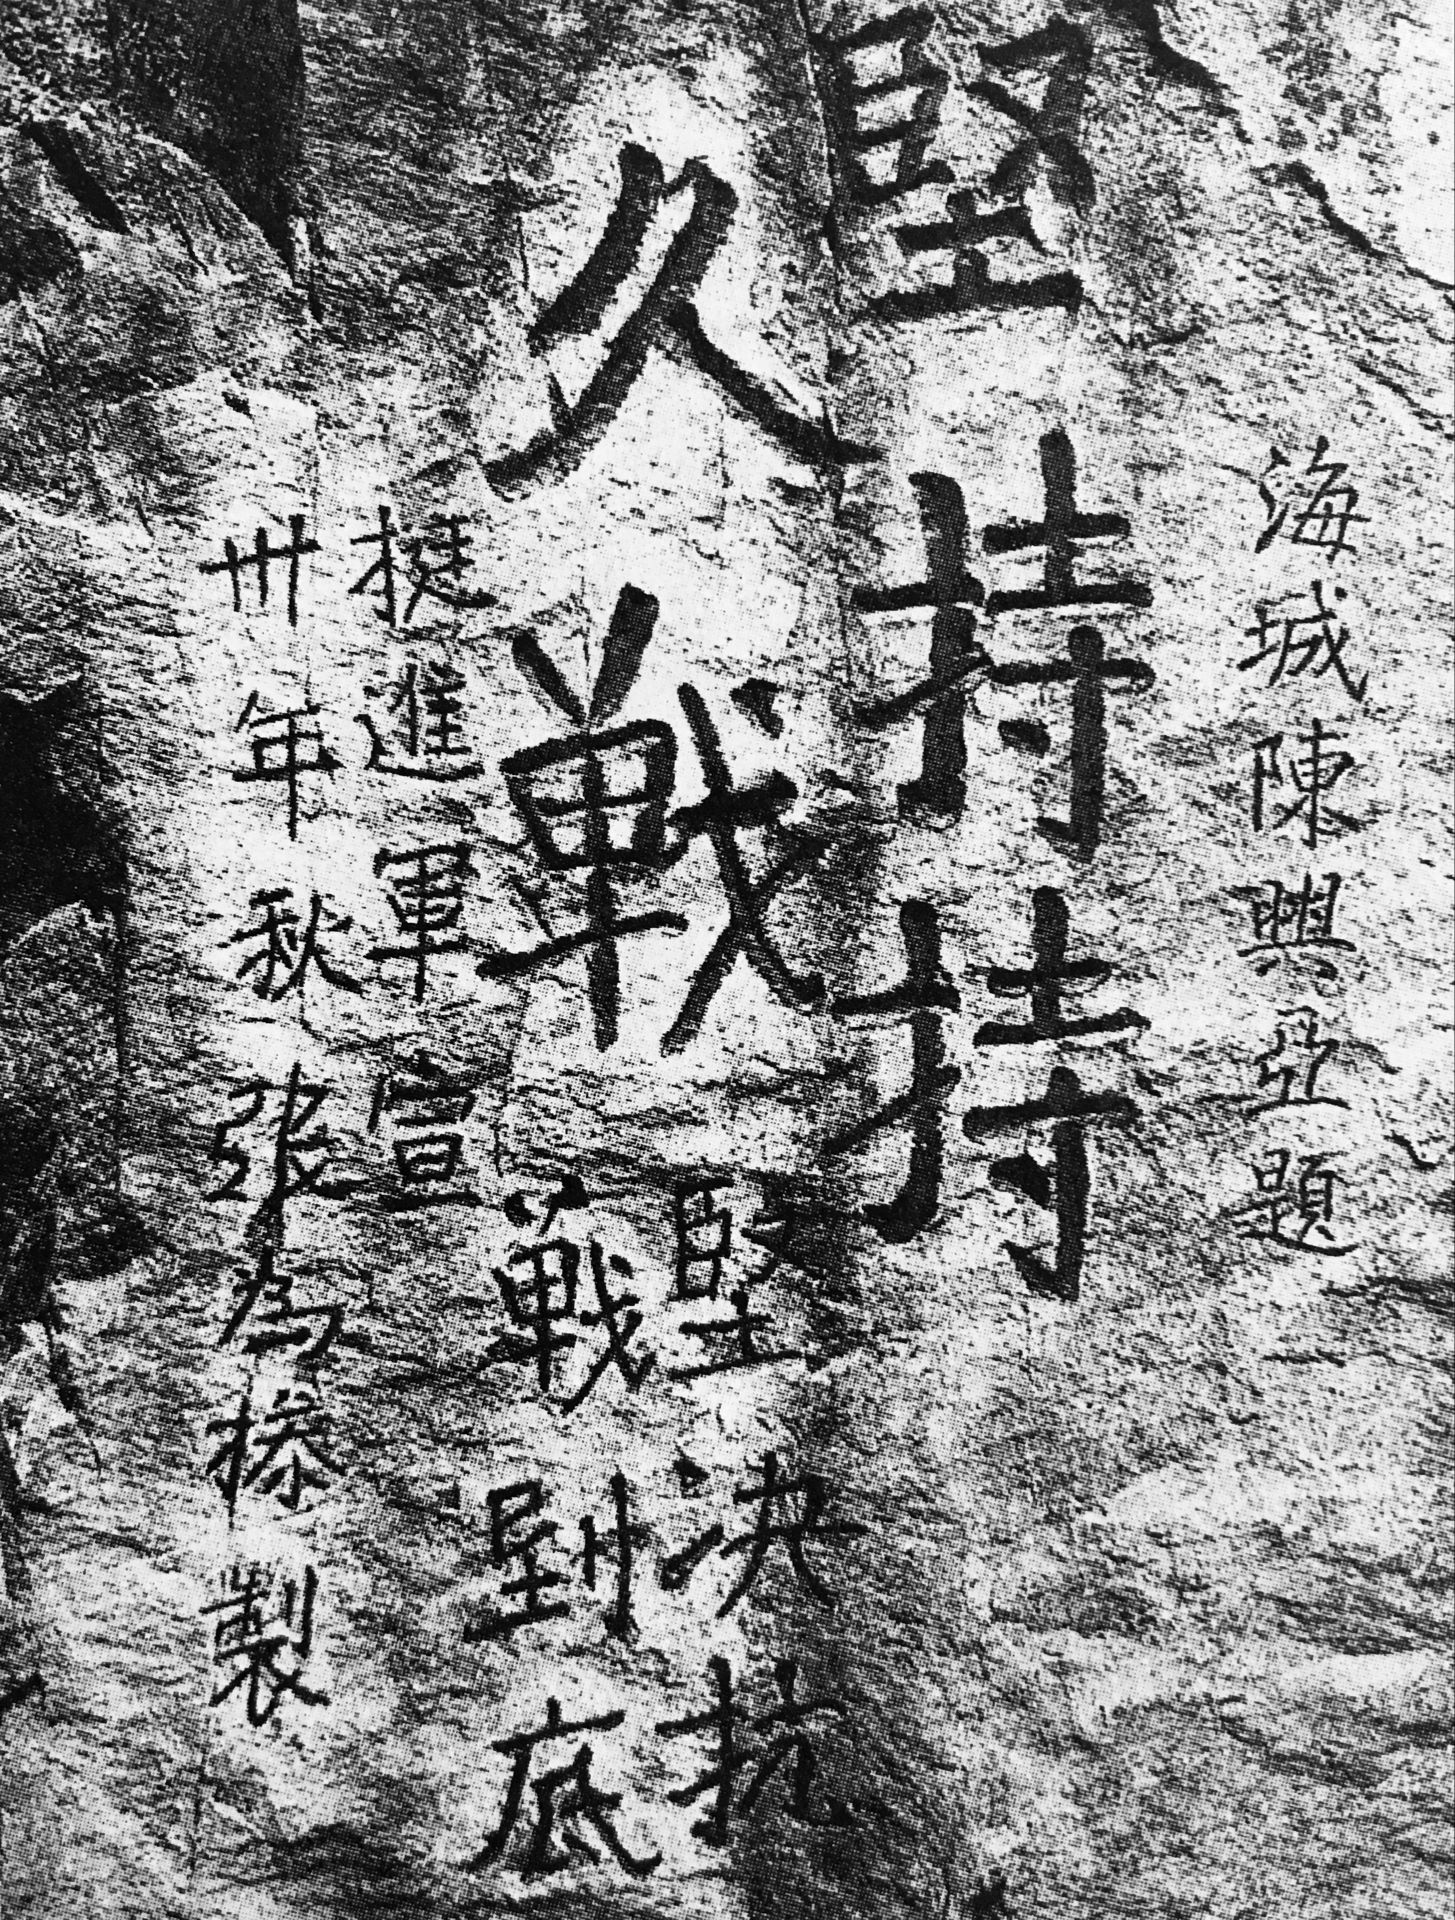 海城陳興亞題
堅持持
久戰
堅決抗
戰到底
挺進軍宣
卅年秋張為製